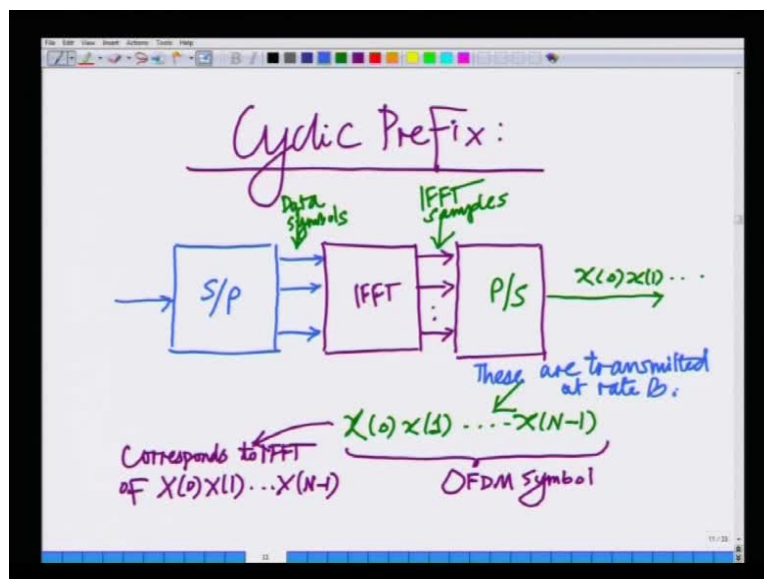 File Edit View Insert Actions Tools Help
Cyclic Prefix:
Data
symbols
IFFT
samples
S/P
IFFT
P/S
x(0)x(1)....
These are transmitted
at rate B.
x(0)x(1).....x(N-1)
Corresponds to IFFT
of X(0)X(1)...X(N-1)
OFDM Symbol